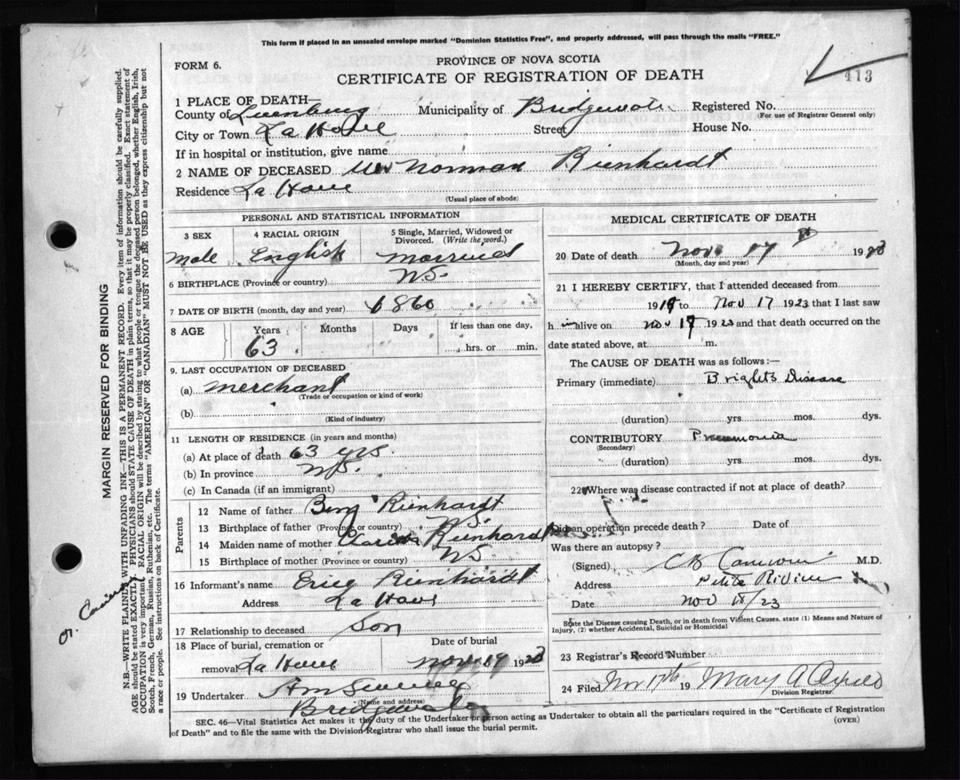 This form if placed in an unsealed envelope marked "Dominion Statistics Free", and properly addressed, will pass through the mails "FREE."
FORM 6.
PROVINCE OF NOVA SCOTIA
CERTIFICATE OF REGISTRATION OF DEATH
413
1 PLACE OF DEATH—
County of Lunenburg Municipality of Bridgewater Registered No.
(For use of Registrar General only)
City or Town La Have Street House No.
If in hospital or institution, give name
2 NAME OF DECEASED Norman Rienhardt
Residence La Have
(Usual place of abode)
PERSONAL AND STATISTICAL INFORMATION
3 SEX 4 RACIAL ORIGIN 5 Single, Married, Widowed or Divorced. (Write the word.)
Male English Married
6 BIRTHPLACE (Province or country) N.S.
7 DATE OF BIRTH (month, day and year) 1860
8 AGE Years Months Days If less than one day,
63 hrs. or min.
9. LAST OCCUPATION OF DECEASED
(a) merchant
(Trade or occupation or kind of work)
(b)
(Kind of industry)
11 LENGTH OF RESIDENCE (in years and months)
(a) At place of death 63 yrs.
(b) In province N.S.
(c) In Canada (if an immigrant)
Parents
12 Name of father Benj Rienhardt
13 Birthplace of father (Province or country) N.S.
14 Maiden name of mother Rienhardt
15 Birthplace of mother (Province or country) N.S.
16 Informant's name Rienhardt
Address La Have
17 Relationship to deceased Son
18 Place of burial, cremation or removal La Have Date of burial Nov 19 1923
19 Undertaker
(Name and address)
Bridgewater
MEDICAL CERTIFICATE OF DEATH
20 Date of death Nov 17 1923
(Month, day and year)
21 I HEREBY CERTIFY, that I attended deceased from
19 to Nov 17 1923 that I last saw
h im alive on Nov 17 1923 and that death occurred on the
date stated above, at m.
The CAUSE OF DEATH was as follows:—
Primary (immediate) Brights Disease
(duration) yrs. mos. dys.
CONTRIBUTORY Pneumonia
(Secondary)
(duration) yrs. mos. dys.
22 Where was disease contracted if not at place of death?
Did an operation precede death? Date of
Was there an autopsy?
(Signed) M.D.
Address Petite Riviere
Date Nov /23
State the Disease causing Death, or in death from Violent Causes, state (1) Means and Nature of Injury, (2) whether Accidental, Suicidal or Homicidal
23 Registrar's Record Number
24 Filed Nov 17th 19 Mary A
Division Registrar.
SEC. 46—Vital Statistics Act makes it the duty of the Undertaker or person acting as Undertaker to obtain all the particulars required in the "Certificate of Registration
of Death" and to file the same with the Division Registrar who shall issue the burial permit. (OVER)
MARGIN RESERVED FOR BINDING
N.B.—WRITE PLAINLY WITH UNFADING INK—THIS IS A PERMANENT RECORD. Every item of information should be carefully supplied.
AGE should be stated EXACTLY. PHYSICIANS should STATE CAUSE OF DEATH in plain terms, so that it may be properly classified. Exact statement of
OCCUPATION is very important. RACIAL ORIGIN will be described by stating to what people or tongue the deceased person belonged, whether English, Irish,
Scotch, French, German, Russian, Ruthenian, etc. The terms "AMERICAN" OR "CANADIAN" MUST NOT BE USED as they express citizenship but not
a race or people. See instructions on back of Certificate.